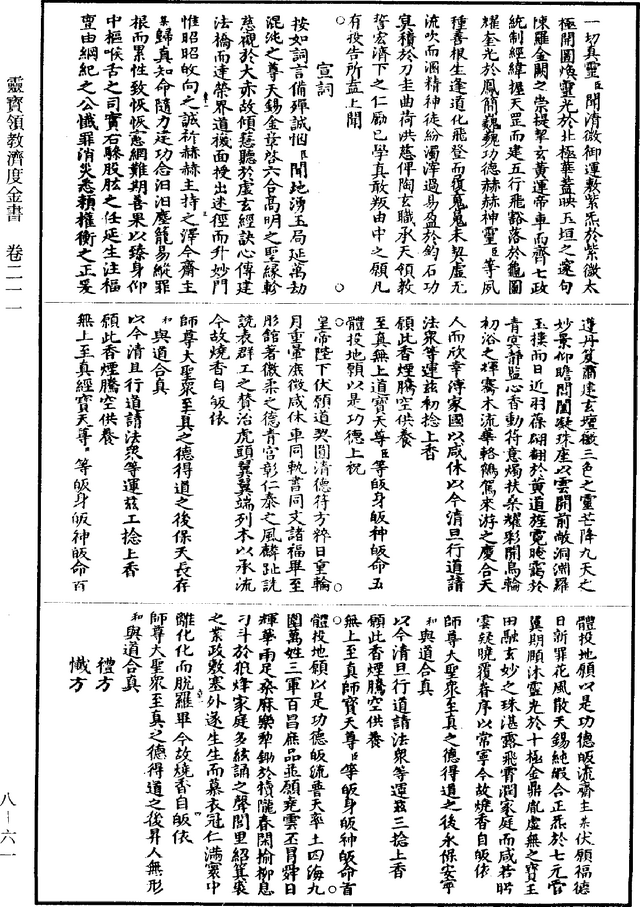 一切真靈臣聞清微御運敷紫炁於紫微太
極開圖煥靈光於北極華蓋映五垣之邃句
陳羅金闕之崇提挈玄黃運帝車而齊七政
統制經緯握天罡而建五行飛豁落於龍圖
燿奎光於鳳簡巍巍功德赫赫神靈臣等夙
種善根生逢道化飛登而復嵬嵬未契虛无
流吹而涸精神徒紛濁滓過易盈於鈞石功
莫積於刀圭曲荷洪慈俾陶玄職承天領教
誓宏濟下之仁勵己學真敢叛由中之願凡
有投告所盍上聞
宣詞
按如詞言備殫誠悃臣聞地湧玉局延萬劫
混沌之尊天錫金章啓六合高明之聖緣軫
慈觀於大赤故傾慈聽於虛玄經訣心傳建
法橋而達榮界道複面授出迷徑而升妙門
惟昭昭皈向之誠祈赫赫主持之澤今齋主
某歸真知命隨力建功念汨汨塵籠易縱罪
根而累性致恢恢慈網難期善果以臻身仰
中樞喉舌之司實右縣股肱之任延生注福
亶由綱紀之公懺罪消災悉賴權衡之正爰
遵丹笈肅建玄壇徹三色之靈芒降九天之
妙景仰瞻閶闔凝珠座以雲開前敞洞淵羅
玉樸而日近羽葆翩翻於黃道旌霓晻靄於
青冥靜監心香動符意燭扶桑耀彩開鳥輪
初浴之輝騫木流華輅鶴駕來游之慶合天
人而欣幸溥家國以咸休以今清旦行道請
法衆等運茲初捻上香
願此香煙騰空供養
至真無上道寶天尊臣等皈身皈神皈命五
體投地願以是功德上祝
皇帝陛下伏願道契闓清德符方粹日重輪
月重暈庶徵咸休車同軌書同文諸福畢至
彤館著徽柔之德青宮彰仁泰之風麟趾詵
詵表群工之賛治虎頭翼翼端列本以承流
今故燒香自皈依
師尊大聖衆至真之德得道之後保天長存
和與道合真
以今清旦行道請法衆等運茲工捻上香
願此香煙騰空供養
無上至真經寶天尊臣等皈身皈神皈命百
體投地願以是功德皈流齋主某伏願福德
日新罪花風散天錫純嘏合正炁於七元官
翼期願沐靈光於十極金鼎胤虛無之寶玉
田融玄妙之珠湛露飛霄潤家庭而咸若
雲疑曉覆眷序以常寧今故燒香自皈依
師尊大聖衆至真之德得道之後永保安寧
和與道合真
以今清旦行道請法衆等運茲三捻上香
願此香煙騰空供養
無上至真師寶天尊臣等皈身皈神皈命首
體投地願以是功德皈流普天率土四海九
圍萬姓三軍百昌庶品並願堯雲丕冐舜日
輝華雨足桑麻樂犁鋤於樍隴春閑榆柳息
刁斗於狼烽家庭多絃誦之聲閭里紹箕裘
之業政敷塞外遂生生而慕衣冠仁滿寰中
離化化而脫羅罼今故燒香自皈依
師尊大聖衆至真之德得道之後昇入無形
和與道合真
禮方
懺方
靈寶領教濟度金書 卷二一一
八－六一